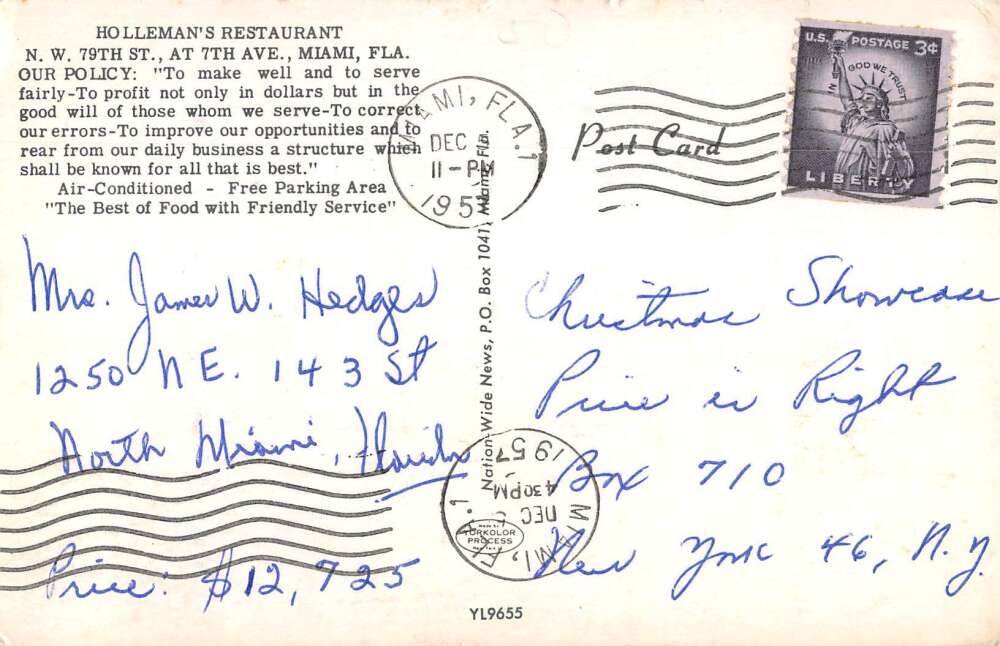 HOLLEMAN'S RESTAURANT
N. W. 79TH ST., AT 7TH AVE., MIAMI, FLA.
OUR POLICY: "To make well and to serve
fairly-To profit not only in dollars but in the
good will of those whom we serve-To correct
our errors-To improve our opportunities and to
rear from our daily business a structure which
shall be known for all that is best."
Air-Conditioned - Free Parking Area
"The Best of Food with Friendly Service"
MIAMI, FLA. 1
DEC
11-PM
1957
Post Card
U.S. POSTAGE 3¢
IN GOD WE TRUST
LIBERTY
Mrs. James W. Hedges
1250 N E. 143 St
North Miami, Florida
Price: $12,725
Nation-Wide News, P.O. Box 1041, Miami, Fla.
Christmas Showcase
Price is Right
Box 710
New York 46, N.y.
MIAMI, FLA. 1
DEC
430PM
1957
MADE BY
YORKOLOR
PROCESS
YL9655